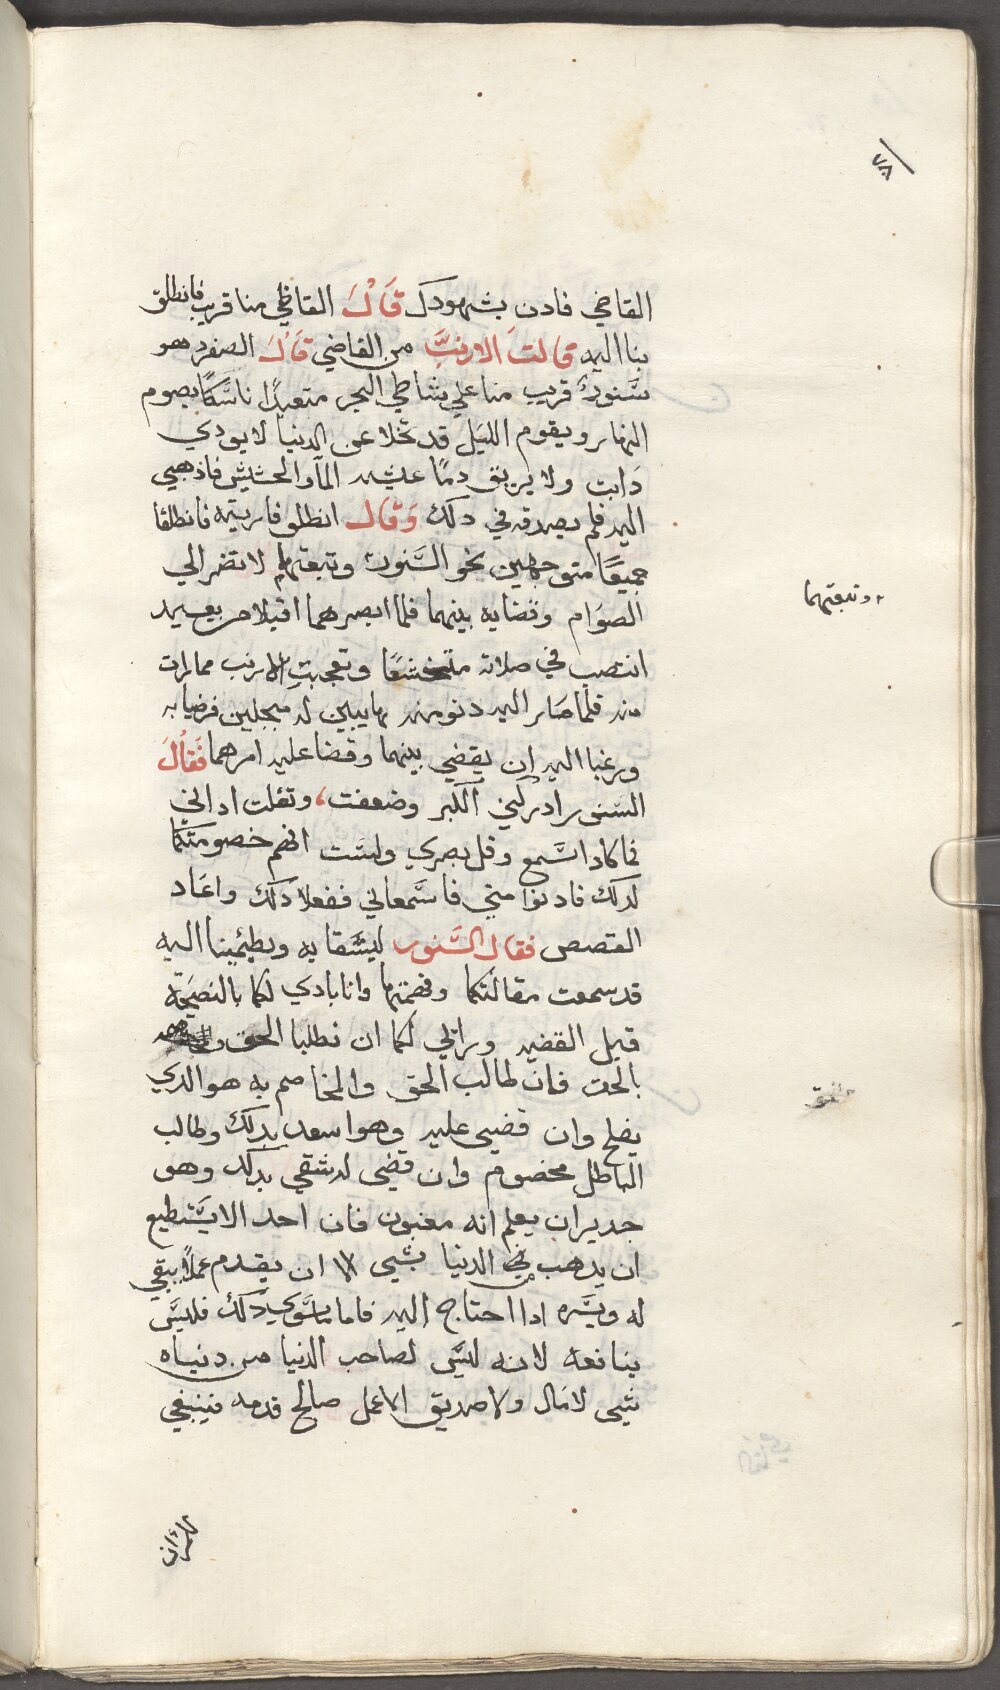 القاضي فادن بشهودك قَالَ القاظي منا قريب فانطلق
بنا اليه قالت الارنبَّ من القاضي قَالَ الصفرد هو
سَّنورٌ قريب منا علي شاطي البحر متعبدًا ناسَّكًا يصوم
النهار ويقوم الليَل قد تخلا عن الدنيا لا يودي
دَابت ولا يريق دمًا عيشه المآ والحشيش فاذهبي
اليه فلم يصدقه في دلك وَقال انطلق فاريته فانطلقا
جميعًا متوجهين نحو السَّنور وتبعتهما لانضر الي
الصوَام وقضايه بينهما فلما ابصرهما اقبلا من بعيد
انتصب في صلاته متخشعًا وتعجبت الارنب مما رات
منه فلما صَار اليه دنو منه هايبين له مبجلين فرضيا به
ورغبا اليه ان يقضي بينهما وقضا عليه امرهما فَقالَ
السَّنور ادركني الكبر وضعفت، وتقلت اداني
فما كاد اسَّمع وقل بصري ولسَّت افهم خصومتكما
لدلك فادنوا مني فاسَّمعاني ففعلا دلك واعَاد
القصص فقال السَّنور ليشقا به ويطئمينا اليه
قد سمعت مقالتكما وفهمتها وانا بادي لكما بالنصيَحة
قبل القضيه وراي لكما ان تطلبا الحق
بالحق فان طالب الحق والمخاصم به هو الدي
يفلح وان قضي عليه وهو اسعد بدلك وطالب
الباطل مخصوم وان قضي له شقي بدلك وهو
جدير ان يعلم انه مغبون فان احد الا يسَّتطيع
ان يدهب من الدنيا بشي الا ان يقدم عملاً يبقي
له ويسَّره ادا احتاج اليه فاما ما سَّوي دلك فليسَّ
بنافعه لانه ليسَّ لصاحب الدنيا من دنياه
شي لا مال ولا صديق الا عمل صالح قدمه فينبغي
وتبعتهما